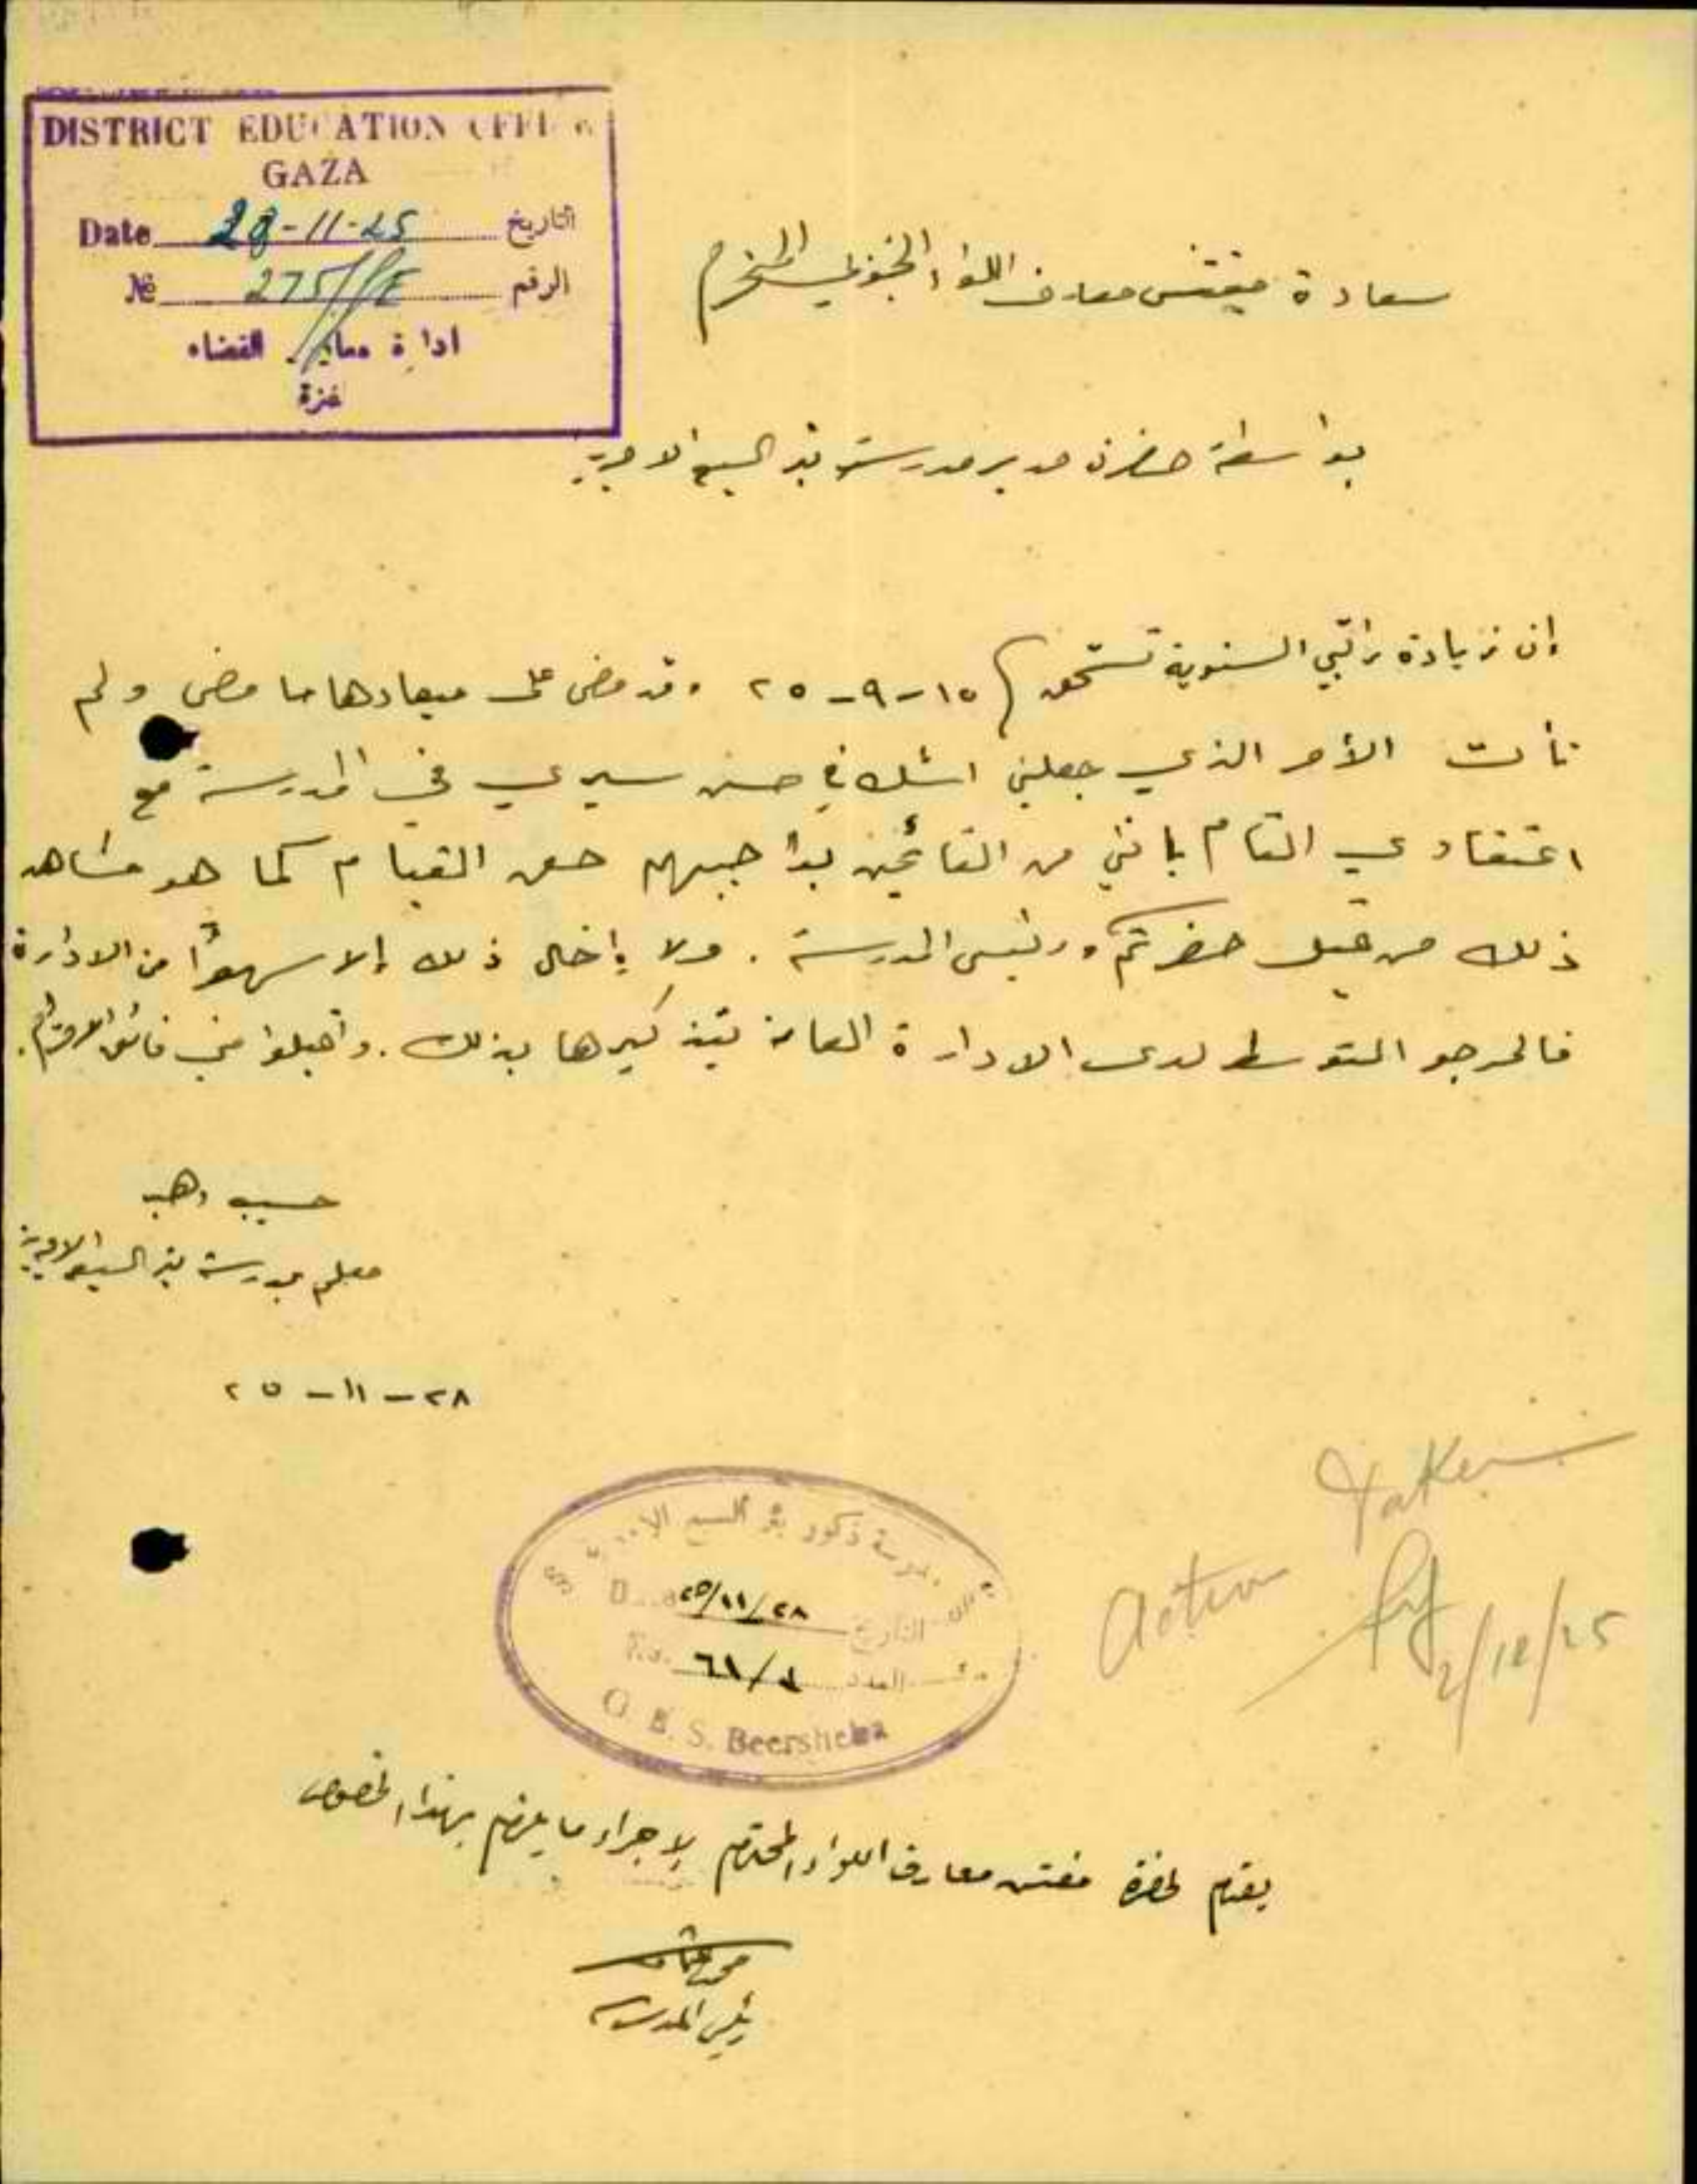 DISTRICT EDUCATION OFFICE
GAZA
Date 28-11-25 التاريخ
№ 275/ الرقم
ادارة معارف القضاء
غزة
سعادة مفتش معارف اللواء الجنوبي المحترم
بواسطة حضرة مدير مدرسة بئر السبع الاميرية
إن زيادة راتبي السنوية تستحق في ١٥-٩-٢٥ وقد مضى على ميعادها ما مضى ولم
تأت الأمر الذي جعلني اشك في حسن سيري في المدرسة مع
اعتقادي التام بانني من القائمين بواجبهم حق القيام كما هو مشاهد
ذلك من قبل حضرتكم ورئيس المدرسة . ولا إخال ذلك إلا سهواً من الادارة
فالمرجو التوسط لدى الادارة العامة بتذكيرها بذلك . واقبلوا مني فائق الاحترام.
حسيب وهبه
معلم مدرسة بئر السبع الاميرية
٢٨-١١-٢٥
Action Taken
2/12/25
مدرسة ذكور بئر السبع الاميرية
Date ٢٥/١١/٢٨ التاريخ
No. ٦١/ العدد
G. B. S. Beersheba
يقدم لحضرة مفتش معارف اللواء المحترم لإجراء ما يلزم بهذا الخصوص
رئيس المدرسة